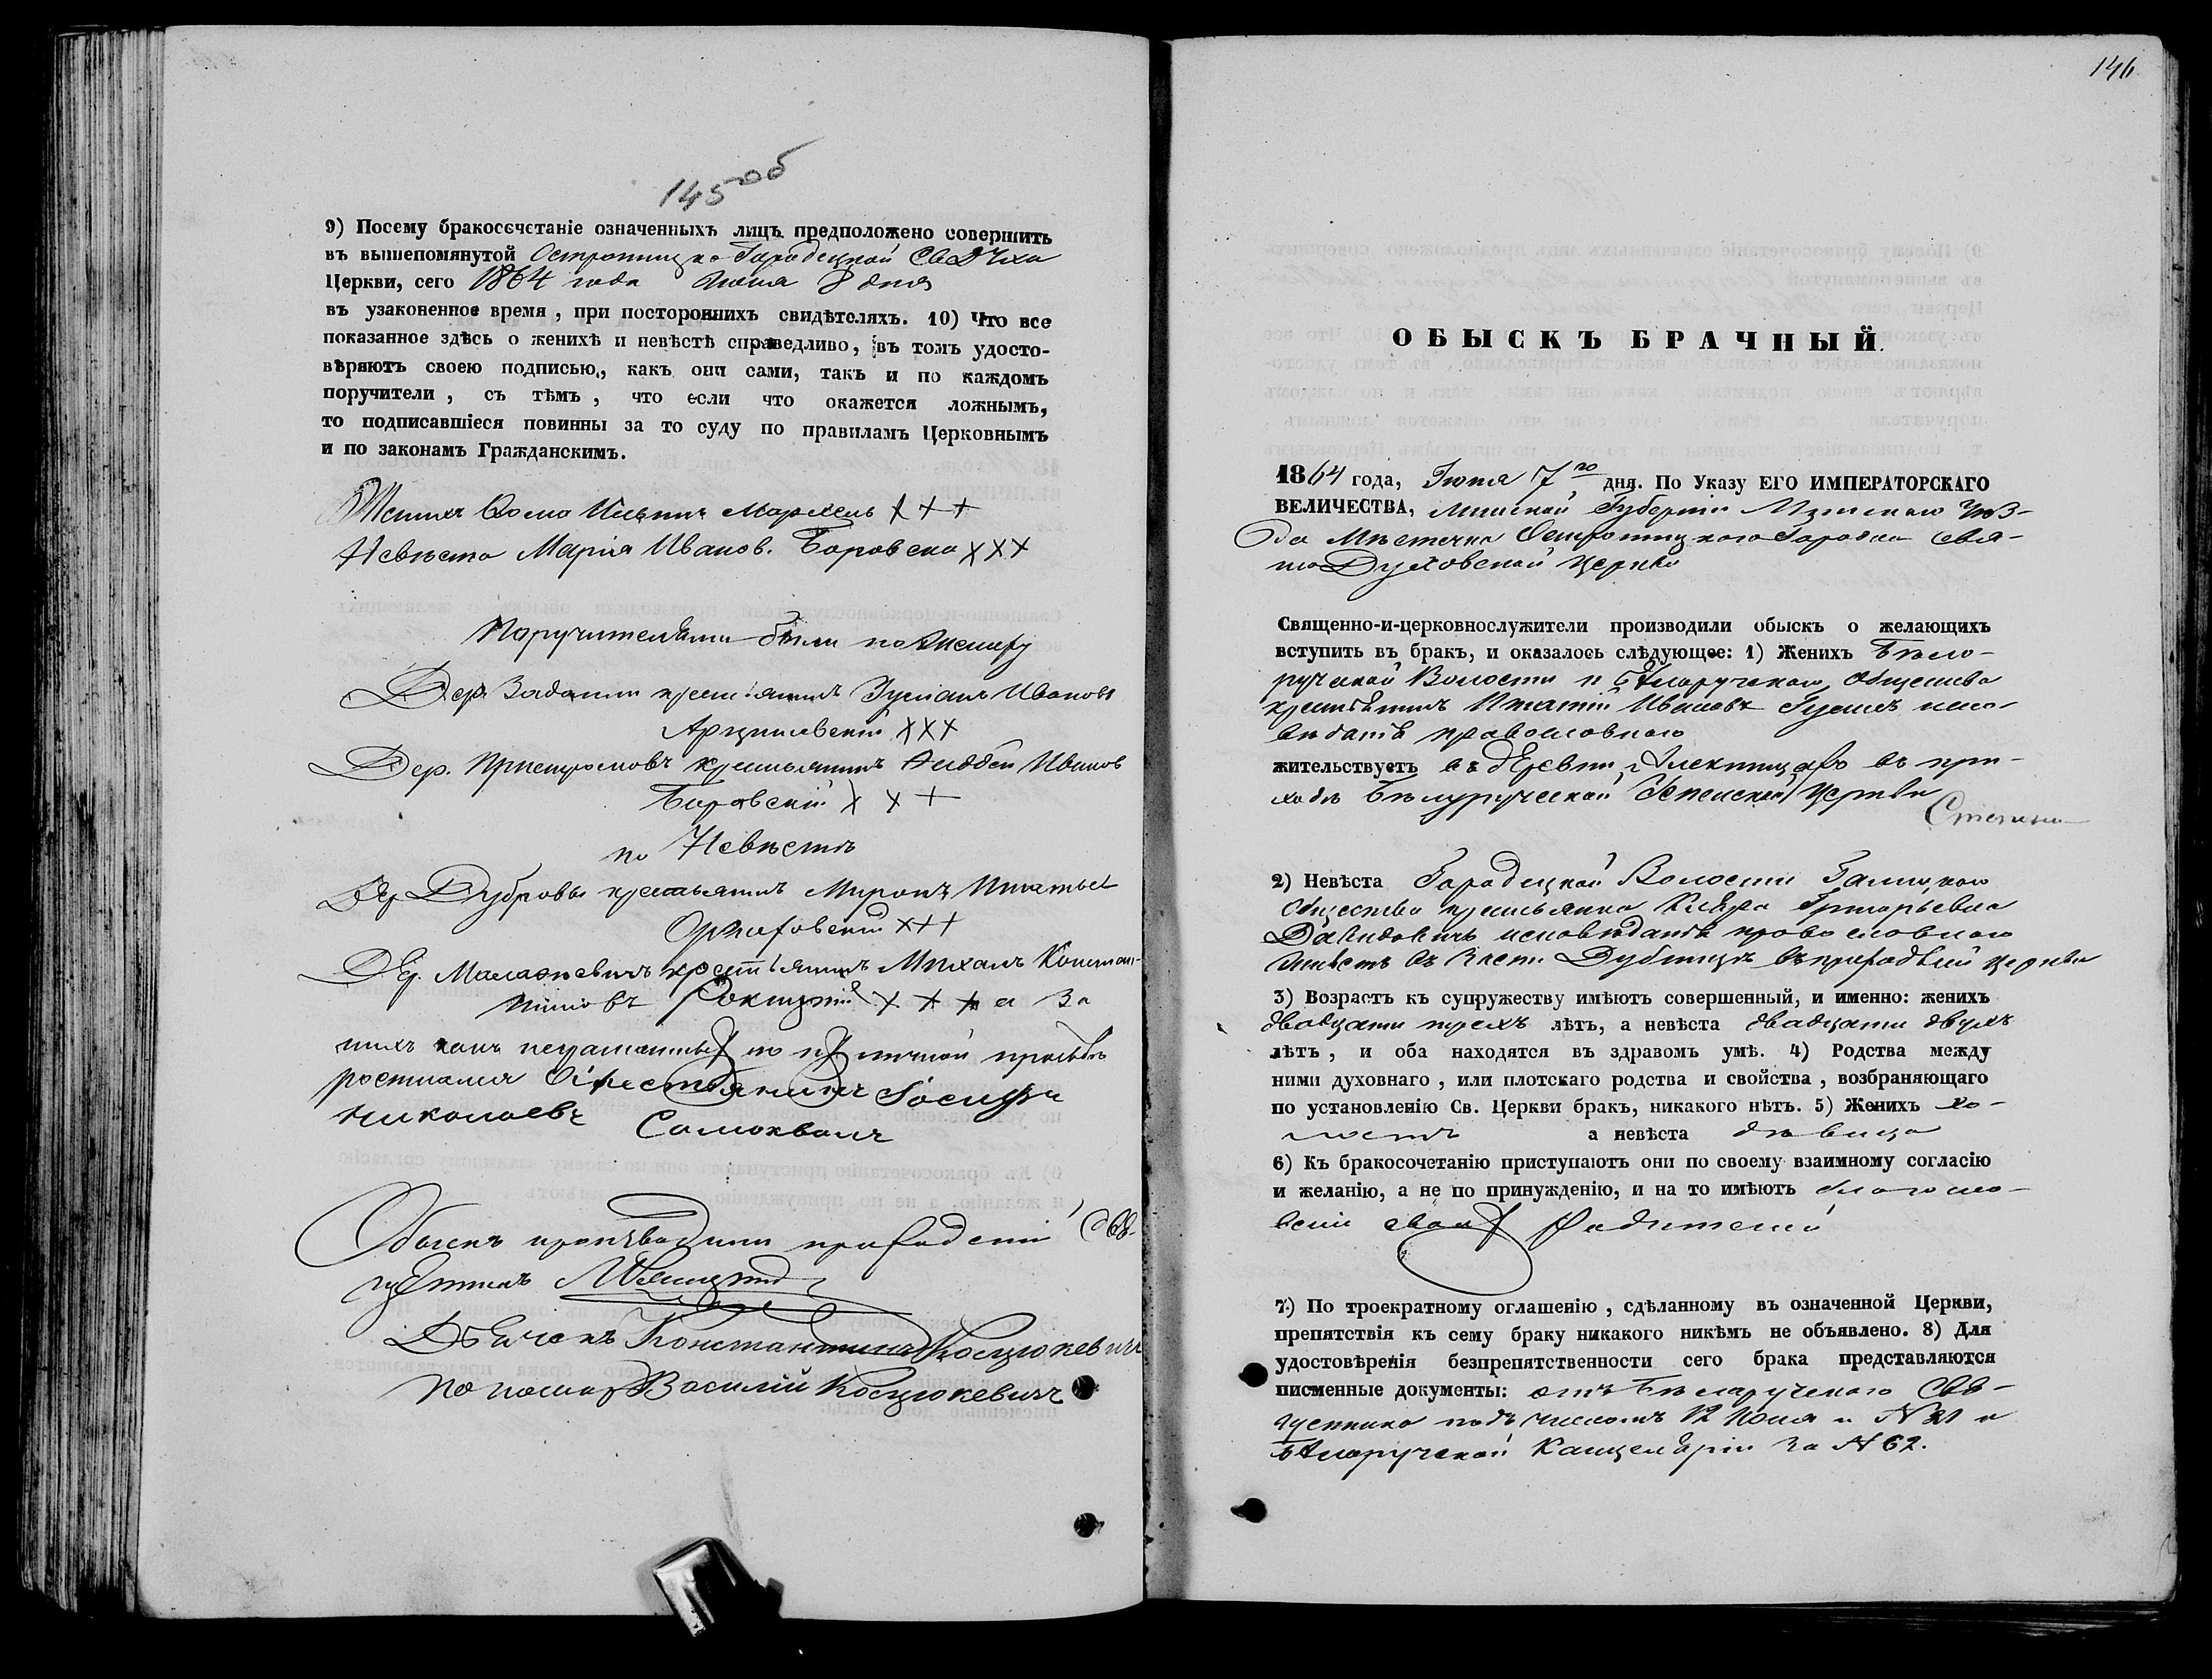 145 об
9) Посему бракосочетаніе означенныхъ лицъ предположено совершить
въ вышепомянутой Остро Городецкой Св Дха
Церкви, сего 1864 года Июня 8 дня
въ узаконенное время, при постороннихъ свидѣтеляхъ. 10) Что все
показанное здѣсь о женихѣ и невѣстѣ справедливо, въ томъ удосто-
вѣряютъ своею подписью, какъ они сами, такъ и по каждомъ
поручители, съ тѣмъ, что если что окажется ложнымъ,
то подписавшіеся повинны за то суду по правиламъ Церковнымъ
и по законамъ Гражданскимъ.
Женихъ Фома Ильинъ +++
Невѣста Марія Иванов. Боровска ххх
Поручителями были по Жениху
Дер. крестьянинъ Ивановъ
ххх
Дер. крестьянинъ Иванов
Боровскій х х +
по Невѣстѣ
Дер Дубровы крестьянинъ Миронъ Игнатьев
х++
Дер. крестьянинъ Михалъ Констан-
тиновъ х + + а за
нихъ какъ неграмотныхъ по ихъ личной прозьбѣ
росписался Крестьянинъ Іосифъ
Николаевъ Самохвалъ
Обыскъ производили приходскій Свя-
щенникъ
Дьячекъ Константинъ Косцюкевичъ
пономарь Василій Косцюкевичъ
146
ОБЫСКЪ БРАЧНЫЙ.
1864 года, Іюня 7го дня. По Указу ЕГО ИМПЕРАТОРСКАГО
ВЕЛИЧЕСТВА, Минской Губерніи Минскаго Уѣз-
да Мѣстечка Острошицкаго Городка Свя-
то Духовской Церкви
Священно-и-церковнослужители производили обыскъ о желающихъ
вступить въ бракъ, и оказалось слѣдующее: 1) Женихъ Бѣло-
ручской Волости и Бѣлоручскаго Общества
крестьянинъ Игнатій Ивановъ испо-
вѣданія православнаго
жительствуетъ въ деревни въ при-
ходѣ Бѣлоручской Успенской Церкви
2) Невѣста Городецкой Волости
Общества крестьянка Григорьева
Давидовичъ исповѣданія православнаго
въ Дубницѣ въ приходѣ сей Церкви
3) Возрастъ къ супружеству имѣютъ совершенный, и именно: женихъ
двадцати трехъ лѣтъ, а невѣста двадцати двухъ
лѣтъ, и оба находятся въ здравомъ умѣ. 4) Родства между
ними духовнаго, или плотскаго родства и свойства, возбраняющаго
по установленію Св. Церкви бракъ, никакого нѣтъ. 5) Женихъ хо-
лостъ а невѣста дѣвица
6) Къ бракосочетанію приступаютъ они по своему взаимному согласію
и желанію, а не по принужденію, и на то имѣютъ благосло-
веніе своихъ Родителей
7) По троекратному оглашенію, сдѣланному въ означенной Церкви,
препятствія къ сему браку никакого никѣмъ не объявлено. 8) Для
удостовѣренія безпрепятственности сего брака представляются
писменные документы: отъ Бѣларучскаго Свя-
щенника подъ числомъ
Бѣларучской Канцеляріи за N 62.